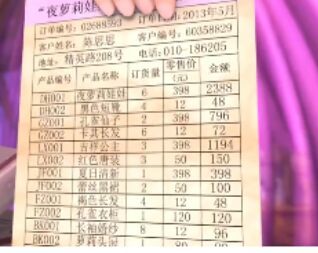 "夜萝莉娃娃
订单编号: 02688593 订单日期: 2013年5月
客户姓名: 陈思思 客户编号: 60358829
地址: 精英路208号 电话: 010-186205
产品编号 产品名称 订货量 零售价(元) 金额
DH001 夜萝莉娃娃 6 398 2388
DH002 黑色短靴 4 12 48
GZ001 孔雀仙子 2 398 796
GZ002 卡其长发 6 12 72
LY001 吉祥公主 3 398 1194
LX002 红色唐装 3 50 150
JF001 夏日清新 1 398 398
JF002 蕾丝黑裙 2 50 100
FZ001 褐色长发 4 12 48
FZ002 孔雀衣柜 1 120 120
BK001 长袖婚纱 8 12 96
BK002 萝莉头